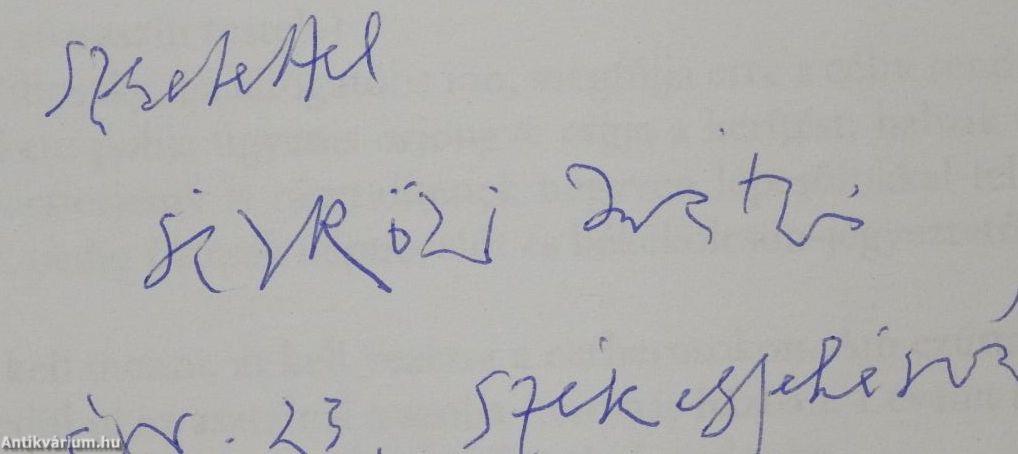 Szeretettel
Sárközi Mátyás
23. Székesfehérvá
Antikvárium.hu